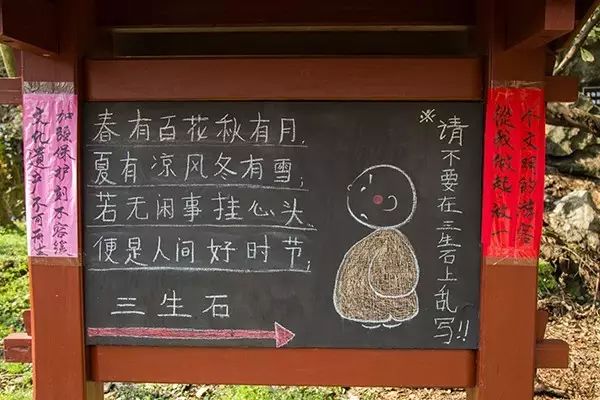 春有百花秋有月,
夏有凉风冬有雪;
若无闲事挂心头,
便是人间好时节;
三生石
※请不要在三生石上乱写!!
文化遗产不可再
加强保护刻不容缓
從我做起做一
个文明的游客